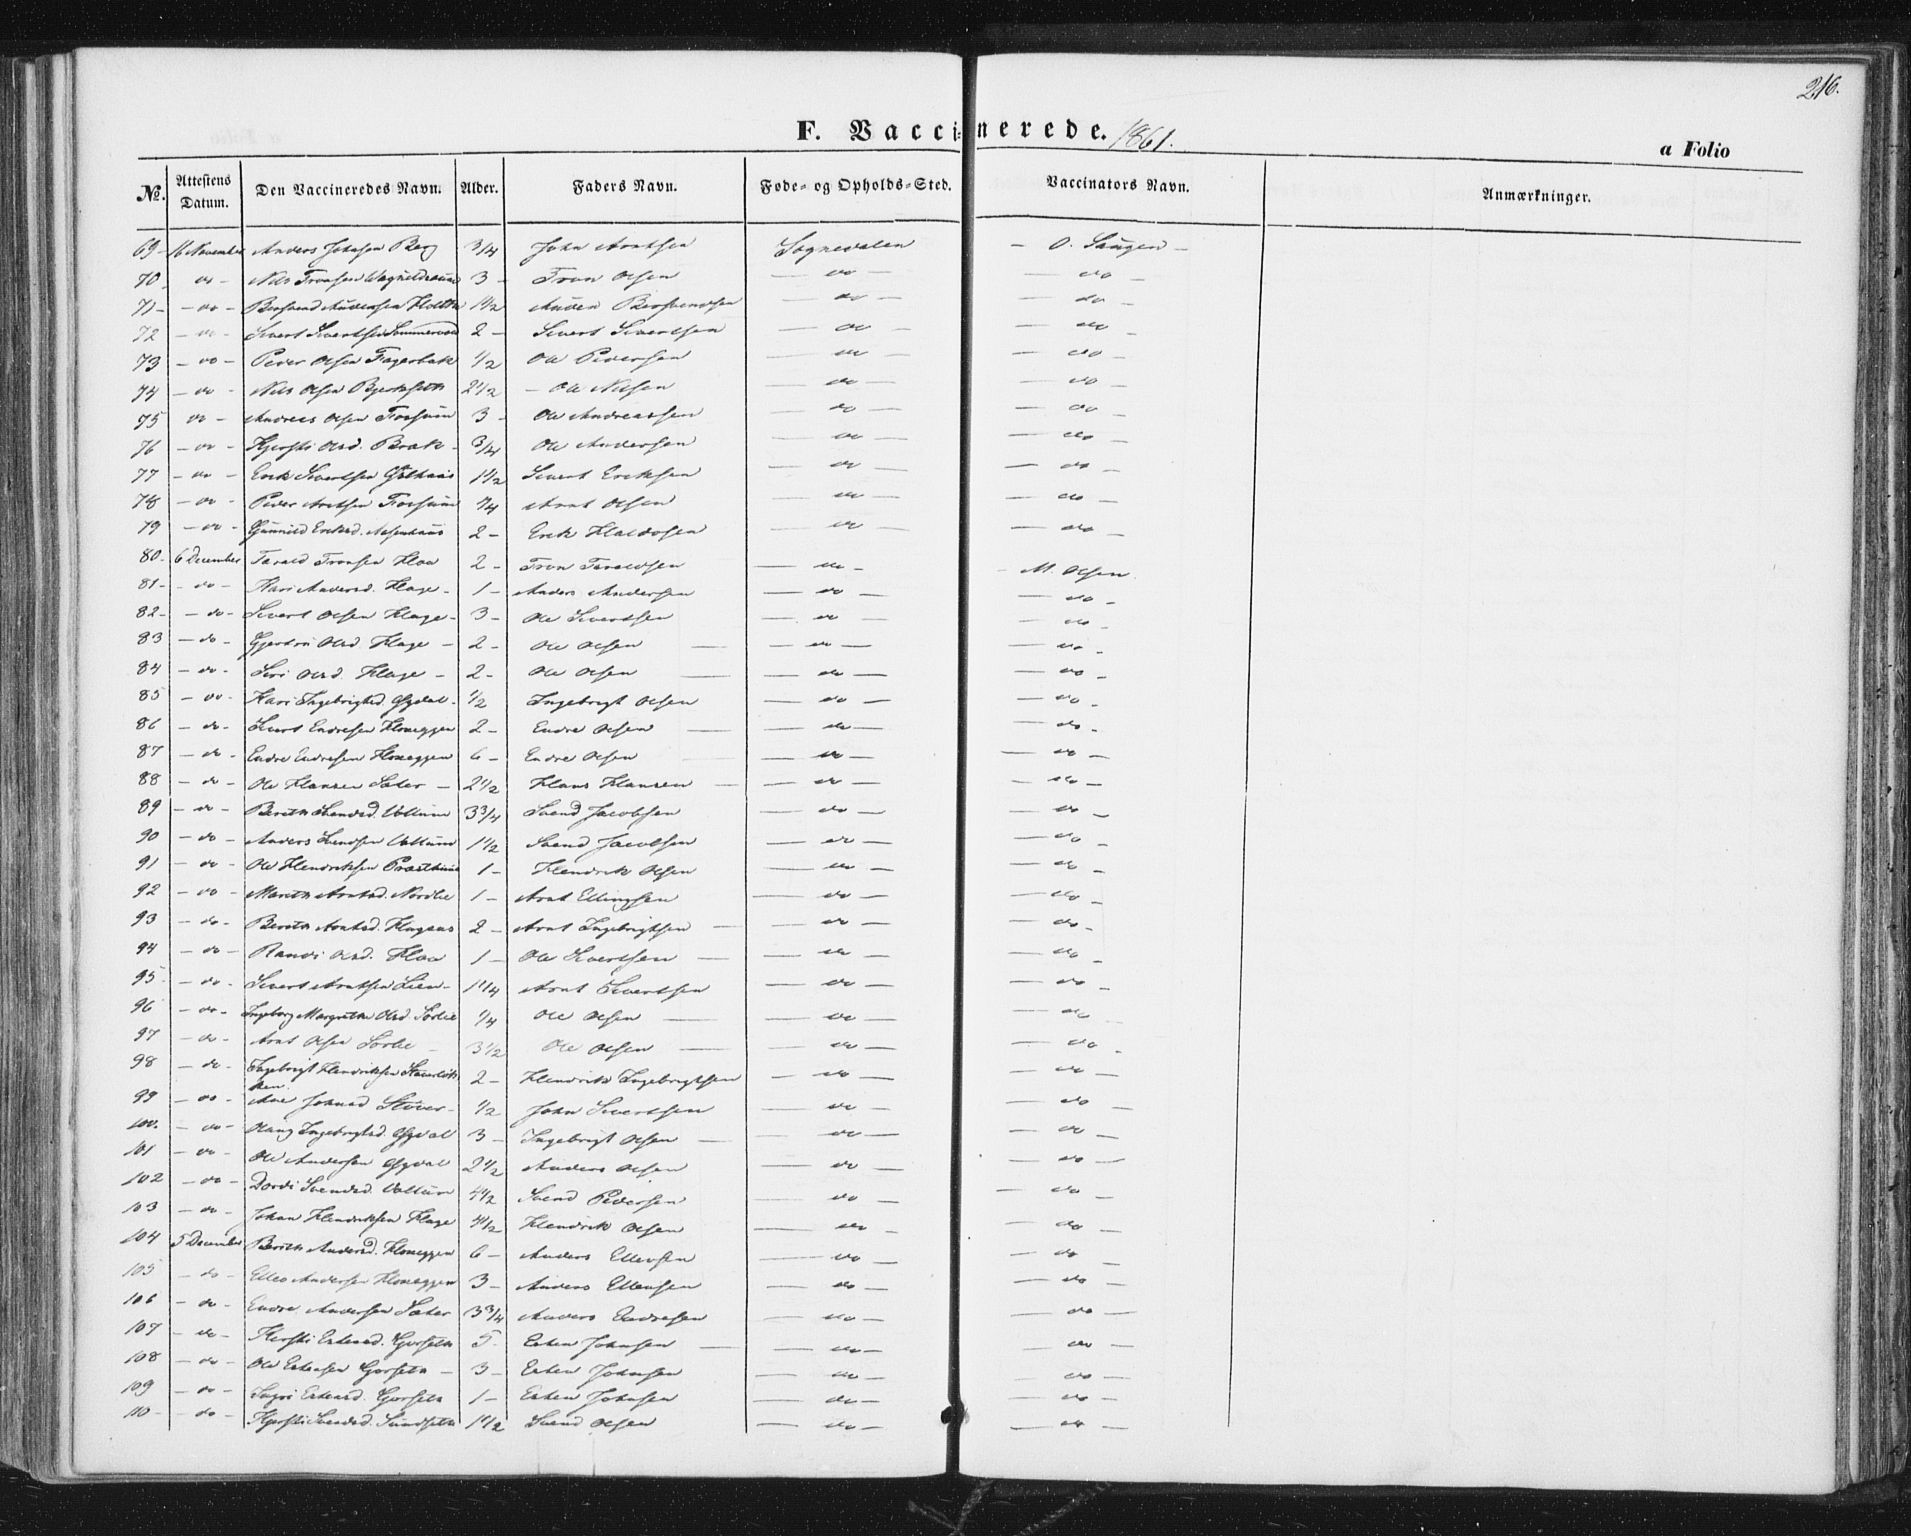 216.
F. Vaccinerede. 1861.
a Folio
No. Attestens Datum. Den Vaccineredes Navn. Alder. Faders Navn. Føde- og Opholds-Sted. Vaccinators Navn. Anmærkninger.
69 - 16 November Anders Johnsen Berg 3/4 John Arntsen Sognedalen - O. Saugen -
70 do - Nils Tronsen 3 - Tron Olsen - do - - do -
71 - - do - Bersvend Audensen 1 1/2 Auden Bersvendsen - do - - do -
72 - do - Sivert Sivertsen 2 - Sivert Sivertsen - do - - do -
73 - do - Peder Olsen Fagerbak 1/2 Ole Pedersen - do - - do -
74 - do - Nils Olsen 2 1/2 - Ole Nilsen - do - - do -
75 do - Andreas Olsen Forsum 3 - Ole Andreassen - do - - do -
76 - do - Kjersti Olsd. Brak - 3/4 Ole Andersen - do - - do -
77 - do - Erik Sivertsen 1 1/2 Sivert Eriksen - do - - do -
78 - do - Peder Arntsen Forsum Arnt Olsen - do - - do -
79 - do - Gunnild Eriksd. 2 - Erik Haldosen - do - - do -
80 - 6 December Tarald Tronsen Hoa 2 - Tron Taraldsen - do - - M. Olsen
81 - - do - Kari Andersd. Hage - 1 - Anders Andersen - do - - do -
82 - - do - Sivert Olsen Hage - 3 - Ole Sivertsen - do - - do -
83 - do - Gjertru Olsd. Hage - 2 - Ole Olsen - do - - do -
84 - do - Siri Olsd. Hage - 2 - Ole Olsen - do - - do -
85 - do - Kari Ingebrigtsd. 1/2 Ingebrigt Olsen - do - - do -
86 - do - Sivert Endresen Honeggen 2 - Endre Olsen - do - - do -
87 - do - Endre Endresen Honeggen 6 - Endre Olsen - do - - do -
88 - do - Ole Hansen Sæter - 2 1/2 Hans Hansen - do - - do -
89 - do - Berith Svendsd. 3 3/4 Svend Jacobsen - do - - do -
90 - do - Anders Svendsen 1 1/2 Svend Jacobsen - do - - do -
91 - do - Ole Hendriksen 1 - Hendrik Olsen - do - - do -
92 - do - Marith Arntsd. Nordlie 1 - Arnt Ellingsen - do - - do -
93 - do - Berith Arntsd. 2 - Arnt Ingebrigtsen - do - - do -
94 - do - Randi Olsd. Hoa 1 - Ole Sivertsen - do - - do -
95 - do - Sivert Arntsen Lien - 1 1/4 Arnt Sivertsen - do - - do -
96 - do - Ingeborg Margrethe Olsd Sørlie 1/4 Ole Olsen - do - - do -
97 - do - Arnt Olsen Sørlie - 3 1/2 Ole Olsen - do - - do -
98 - do - Ingebrigt Hendriksen 2 - Hendrik Ingebrigtsen - do - - do -
99 - do - Ane Johnsd 1/2 John Sivertsen - do - - do -
100 - do - Ingebrigtsd. 3 - Ingebrigt Olsen - do - - do -
101 - do - Ole Andersen 2 1/2 Anders Olsen - do - - do -
102 - do - Dordi Svendsd. 4 1/2 Svend Pedersen - do - - do -
103 - do - Johan Hendriksen Hage 4 1/2 Hendrik Olsen - do - - do -
104 5 December Berith Andersd. Honeggen 6 - Anders Ellevsen - do - - do -
105 - do - Andersen Honeggen 3 - Anders Ellevsen - do - - do -
106 - do - Endre Andersen Sæter 3 3/4 Anders Endresen - do - - do -
107 - do - Kjersti Estensd. Gorseth 5 - Esten Johnsen - do - - do -
108 - do - Ole Estensen Gorseth - 3 - Esten Johnsen - do - - do -
109 - do - Ingri Estensd. Gorseth 1 - Esten Johnsen - do - - do -
110 - - do - Kjersti Svendsd. Sundseth 1 1/2 Svend Olsen - do - - do -